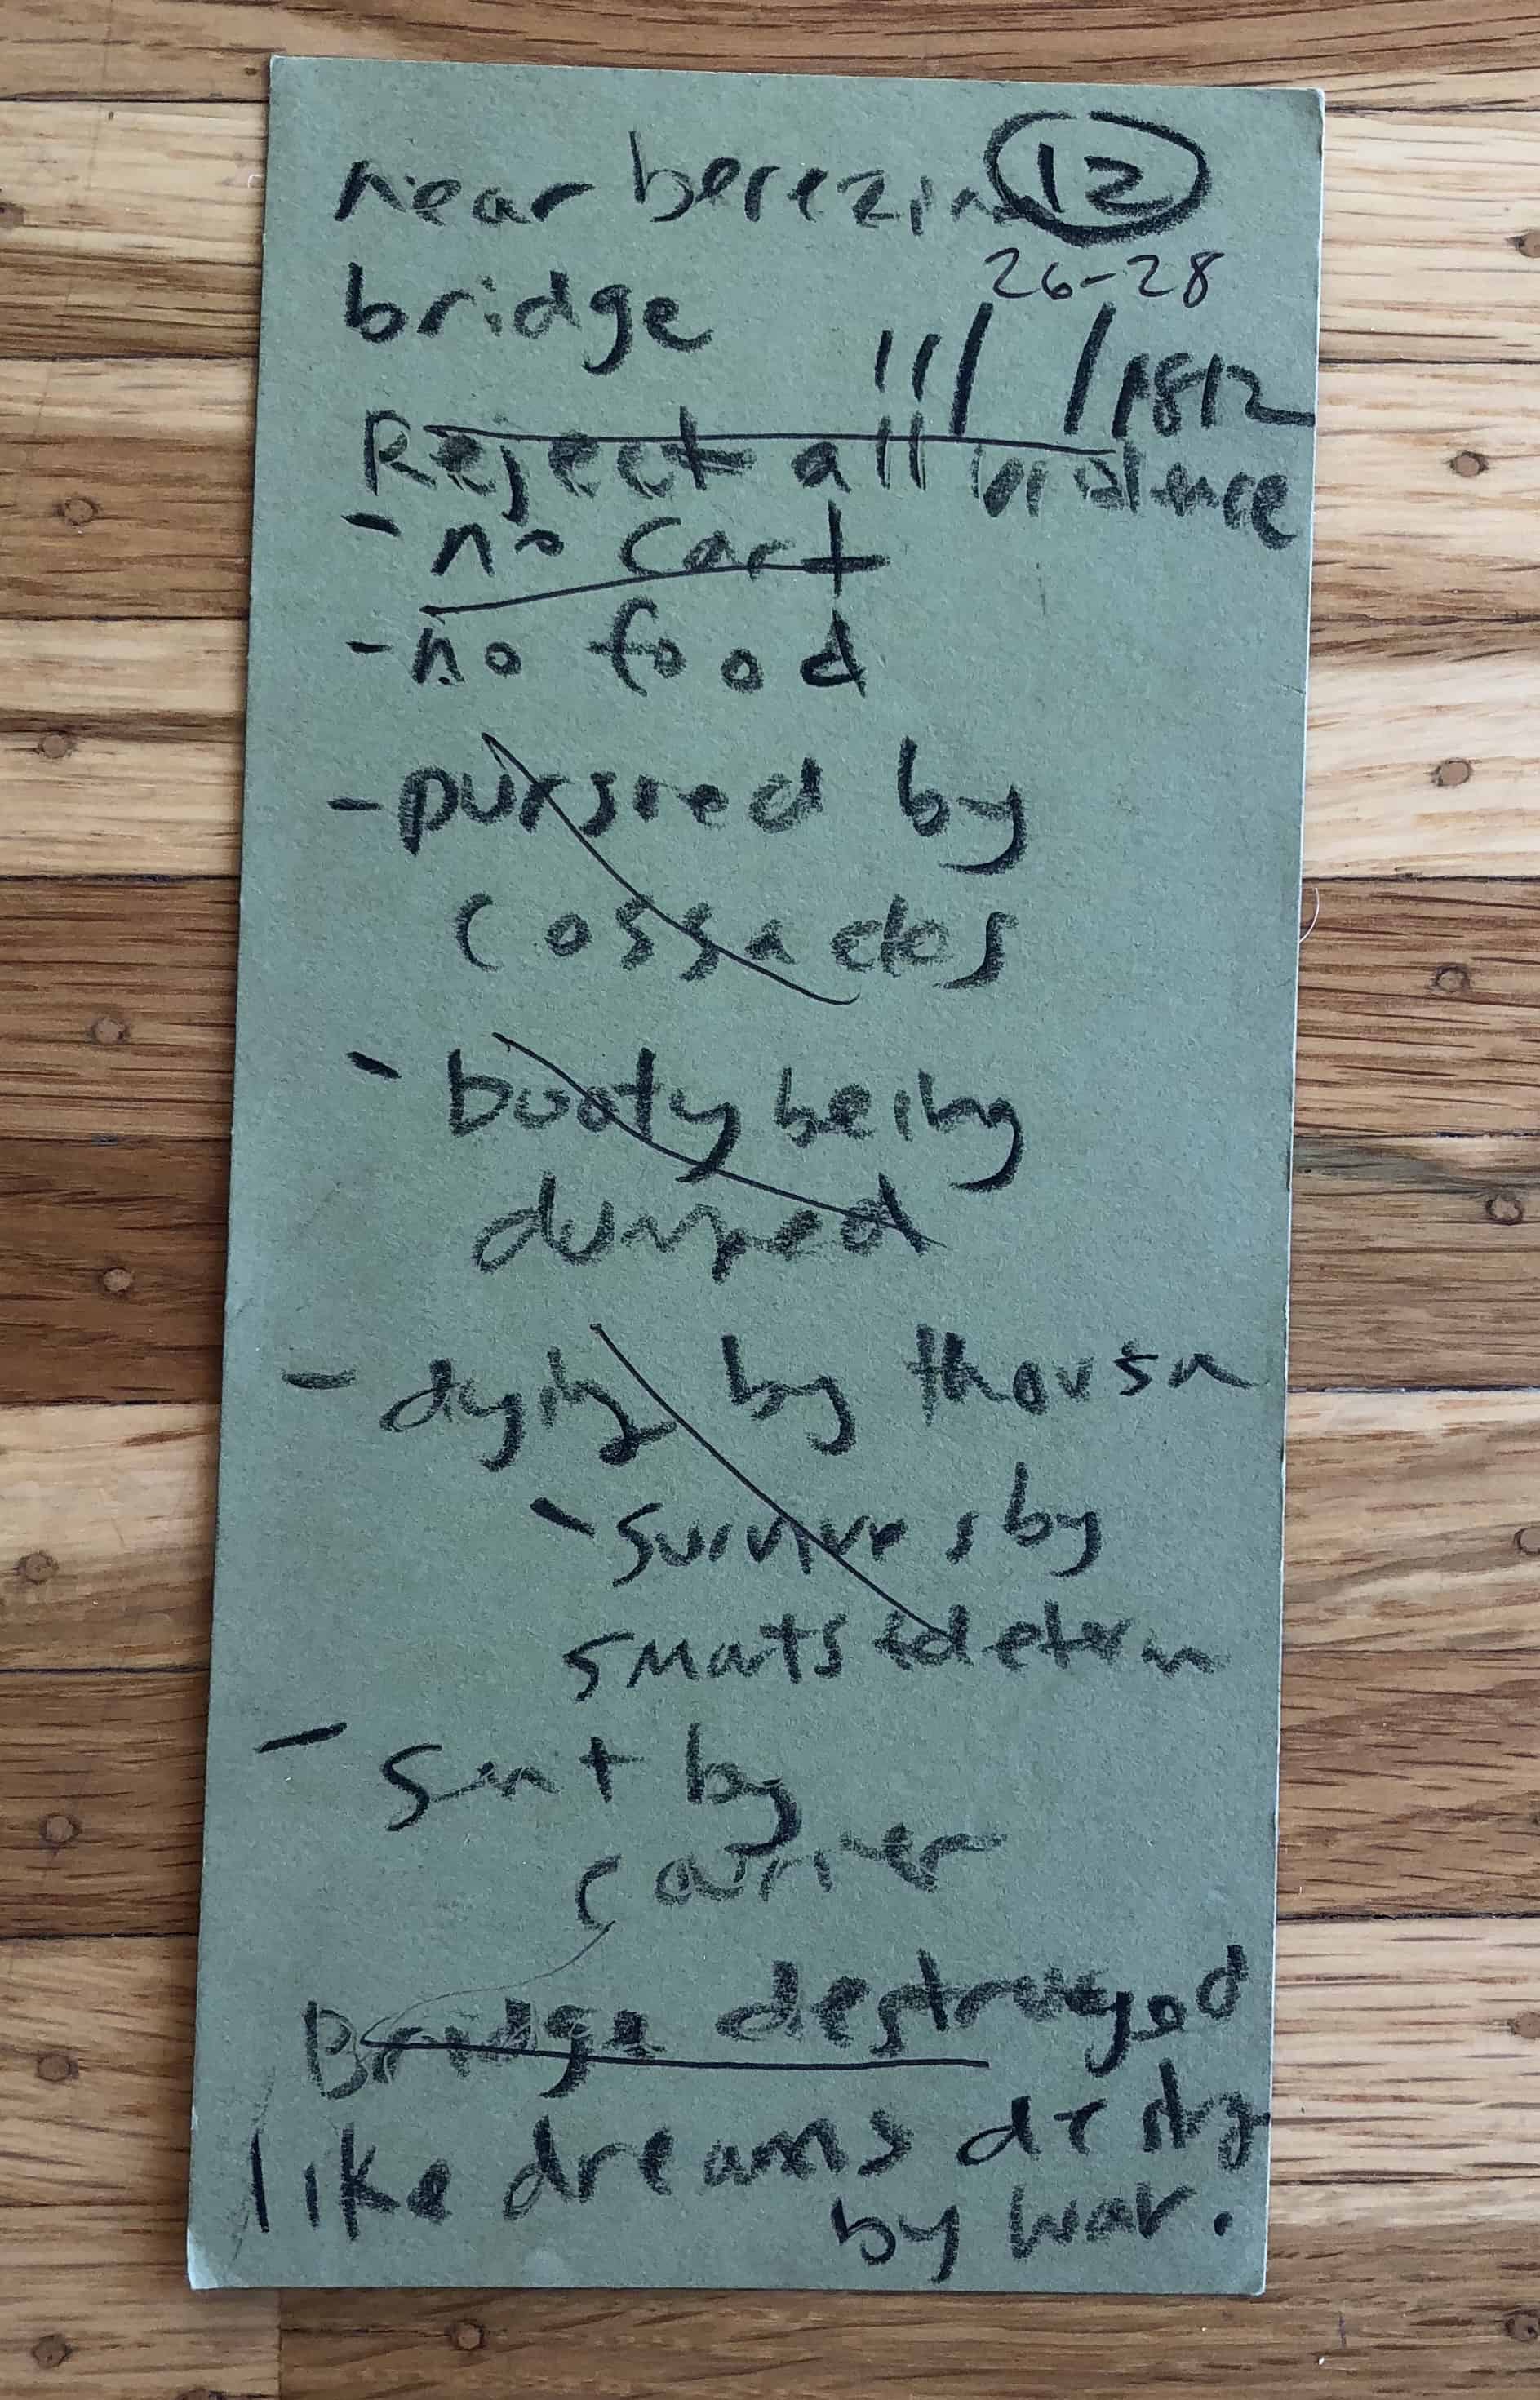 near berezina 12
26-28
bridge
11/ /1812
Reject all violence
- no cart
- no food
- pursued by
cossacks
- booty being
dumped
- dying by thousn
- survives by
smats + determ
- sent by
courrier
Bridge destroyed
like dreams destry
by war.